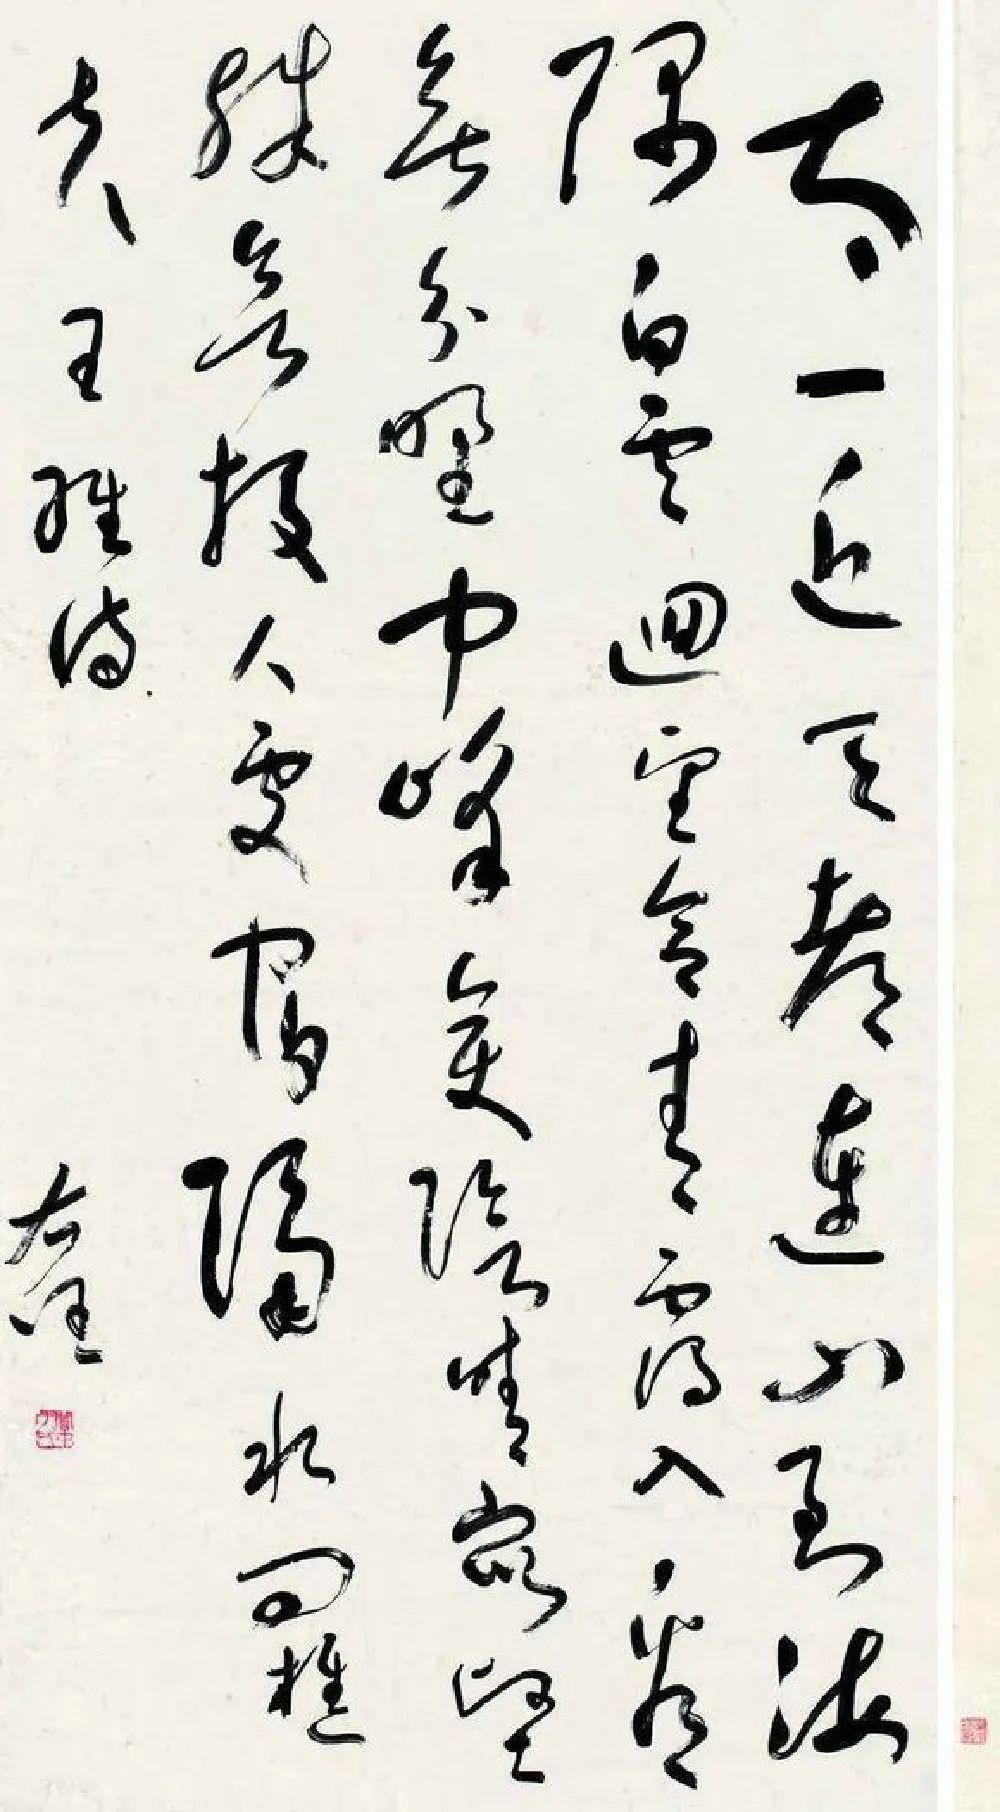 太一近天都連山到海
隅白雲迴望合青靄入看
無分野中峰變陰晴眾壑
殊欲投人處宿隔水問樵
夫王維詩
右任